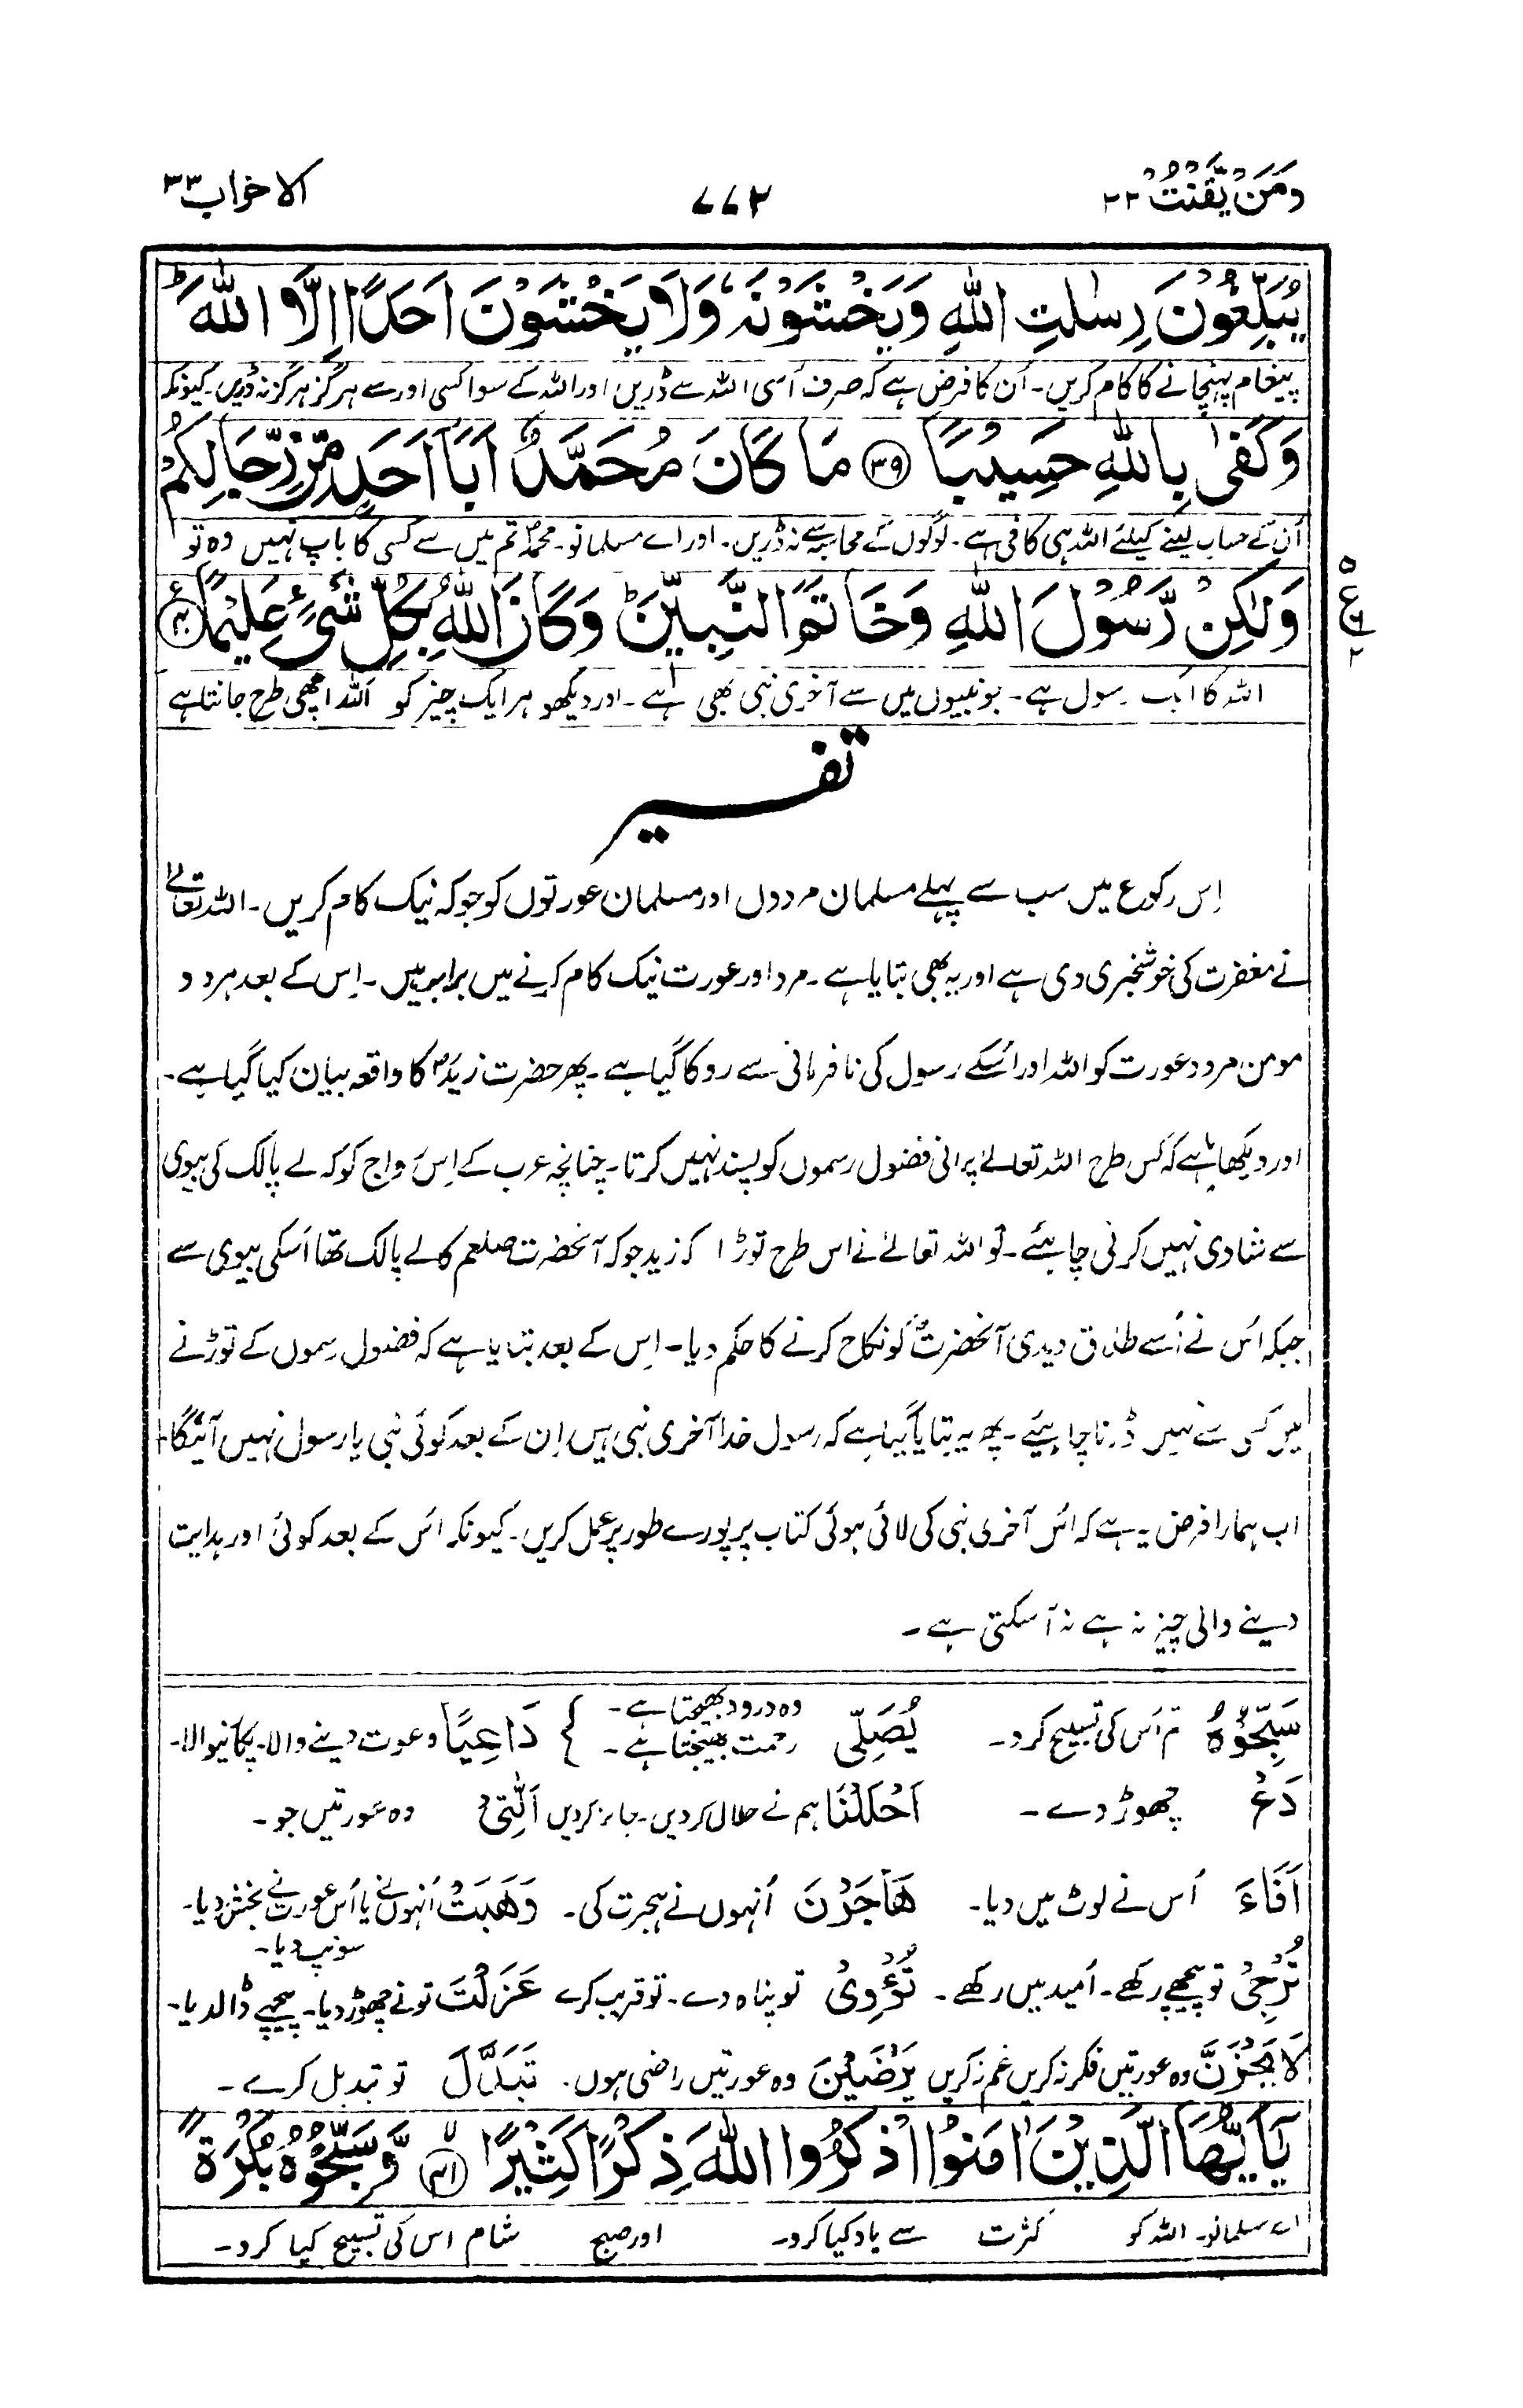 ومن یقنت ۲۲
۷۷۲
الاحزاب ۳۳
يُبَلِّغُوْنَ رِسٰلٰتِ اللّٰهِ وَيَخْشَوْنَهٗ وَلَا يَخْشَوْنَ اَحَدًا اِلَّا اللّٰهَ ؕ
پیغام پہنچانے کا کام کریں۔ اُن کا فرض ہے کہ صرف اُسی اللہ سے ڈریں اور اللہ کے سوا کسی اور سے ہرگز ہرگز نہ ڈریں۔ کیونکہ
وَكَفٰى بِاللّٰهِ حَسِيْبًا ﴿۳۹﴾ مَا كَانَ مُحَمَّدٌ اَبَآ اَحَدٍ مِّنْ رِّجَالِكُمْ
اُن کے حساب لینے کیلئے اللہ ہی کافی ہے۔ لوگوں کے محاسبہ سے نہ ڈریں۔ اور اے مسلمانو۔ محمدؐ تم میں سے کسی کا باپ نہیں وہ تو
وَلٰكِنْ رَّسُوْلَ اللّٰهِ وَخَاتَمَ النَّبِيّٖنَ ؕ وَكَانَ اللّٰهُ بِكُلِّ شَيْءٍ عَلِيْمًا ﴿۴۰﴾
۵
ع
۲
اللہ کا ایک رسول ہے۔ جو نبیوں میں سے آخری نبی بھی ہے۔ اور دیکھو ہر ایک چیز کو اللہ اچھی طرح جانتا ہے
تفسیر
اِس رکوع میں سب سے پہلے مسلمان مردوں اور مسلمان عورتوں کو جو کہ نیک کام کریں۔ اللہ تعالےٰ
نے مغفرت کی خوشخبری دی ہے اور یہ بھی بتایا ہے۔ مرد اور عورت نیک کام کرنے میں برابر ہیں۔ اِس کے بعد ہر دو
مومن مرد و عورت کو اللہ اور اُسکے رسول کی نافرمانی سے روکا گیا ہے۔ پھر حضرت زیدؓ کا واقعہ بیان کیا گیا ہے۔
اور دیکھایا ہے کہ کس طرح اللہ تعالےٰ پرانی فضول رسموں کو پسند نہیں کرتا۔ چنانچہ عرب کے اِس رواج کو کہ لے پالک کی بیوی
سے شادی نہیں کرنی چاہئے۔ تو اللہ تعالےٰ نے اس طرح توڑا کہ زید جو کہ آنحضرت صلعم کا لے پالک تھا اُسکی بیوی سے
جبکہ اُس نے اُسے طلاق دیدی آنحضرتؐ کو نکاح کرنے کا حکم دیا۔ اِس کے بعد بتایا ہے کہ فضول رسموں کے توڑنے
میں کسی سے نہیں ڈرنا چاہیئے۔ پھر یہ بتایا گیا ہے کہ رسول خدا آخری نبی ہیں اِن کے بعد کوئی نبی یا رسول نہیں آئیگا۔
اب ہمارا فرض یہ ہے کہ اُس آخری نبی کی لائی ہوئی کتاب پر پورے طور پر عمل کریں۔ کیونکہ اُس کے بعد کوئی اور ہدایت
دینے والی چیز نہ ہے نہ آ سکتی ہے۔
سَبِّحُوْهُ تم اُس کی تسبیح کرو۔ يُصَلِّىْ وہ درود بھیجتا ہے۔ رحمت بھیجتا ہے۔ } دَاعِيًا دعوت دینے والا۔ پکارنیوالا۔
دَعْ چھوڑ دے۔ اَحْلَلْنَا ہم نے حلال کردیں۔ جائز کردیں اَلّٰتِىْ وہ عورتیں جو۔
اَفَاءَ اُس نے لوٹ میں دیا۔ هَاجَرْنَ اُنہوں نے ہجرت کی۔ وَهَبَتْ اُنہوں نے یا اُس عورت نے بخش دیا۔
سونپ دیا۔
تُرْجِىْ تو پیچھے رکھے۔ اُمید میں رکھے۔ تُؤْوِىْ تو پناہ دے۔ تو قریب کرے عَزَلْتَ تو نے چھوڑ دیا۔ پیچھے ڈالدیا۔
لَا يَحْزَنَّ وہ عورتیں فکر نہ کریں غم نہ کریں يَرْضَيْنَ وہ عورتیں راضی ہوں۔ تَبَدَّلَ تو تبدیل کرے۔
يٰٓاَيُّهَا الَّذِيْنَ اٰمَنُوا اذْكُرُوا اللّٰهَ ذِكْرًا كَثِيْرًا ﴿۴۱﴾ وَّسَبِّحُوْهُ بُكْرَةً
اے مسلمانو۔ اللہ کو کثرت سے یاد کیا کرو۔ اور صبح شام اس کی تسبیح کیا کرو۔